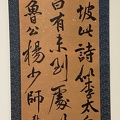 坡此詩似李太白
白有未到處
魯公楊少師